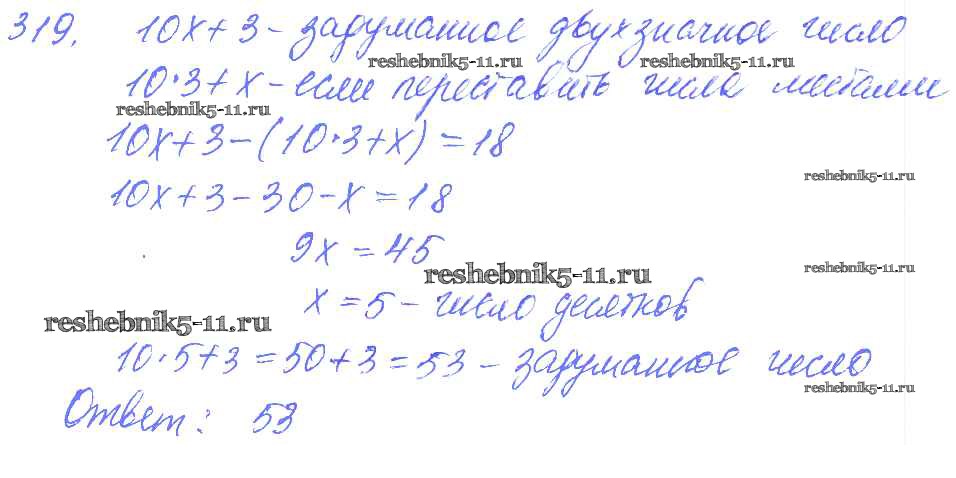 319. 10x + 3 - задуманное двухзначное число
reshebnik5-11.ru reshebnik5-11.ru
10·3 + x - если переставить числа местами
reshebnik5-11.ru
10x + 3 - (10·3 + x) = 18
reshebnik5-11.ru
10x + 3 - 30 - x = 18
9x = 45
reshebnik5-11.ru reshebnik5-11.ru
x = 5 - число десятков
reshebnik5-11.ru
10·5 + 3 = 50 + 3 = 53 - задуманное число
reshebnik5-11.ru
Ответ: 53